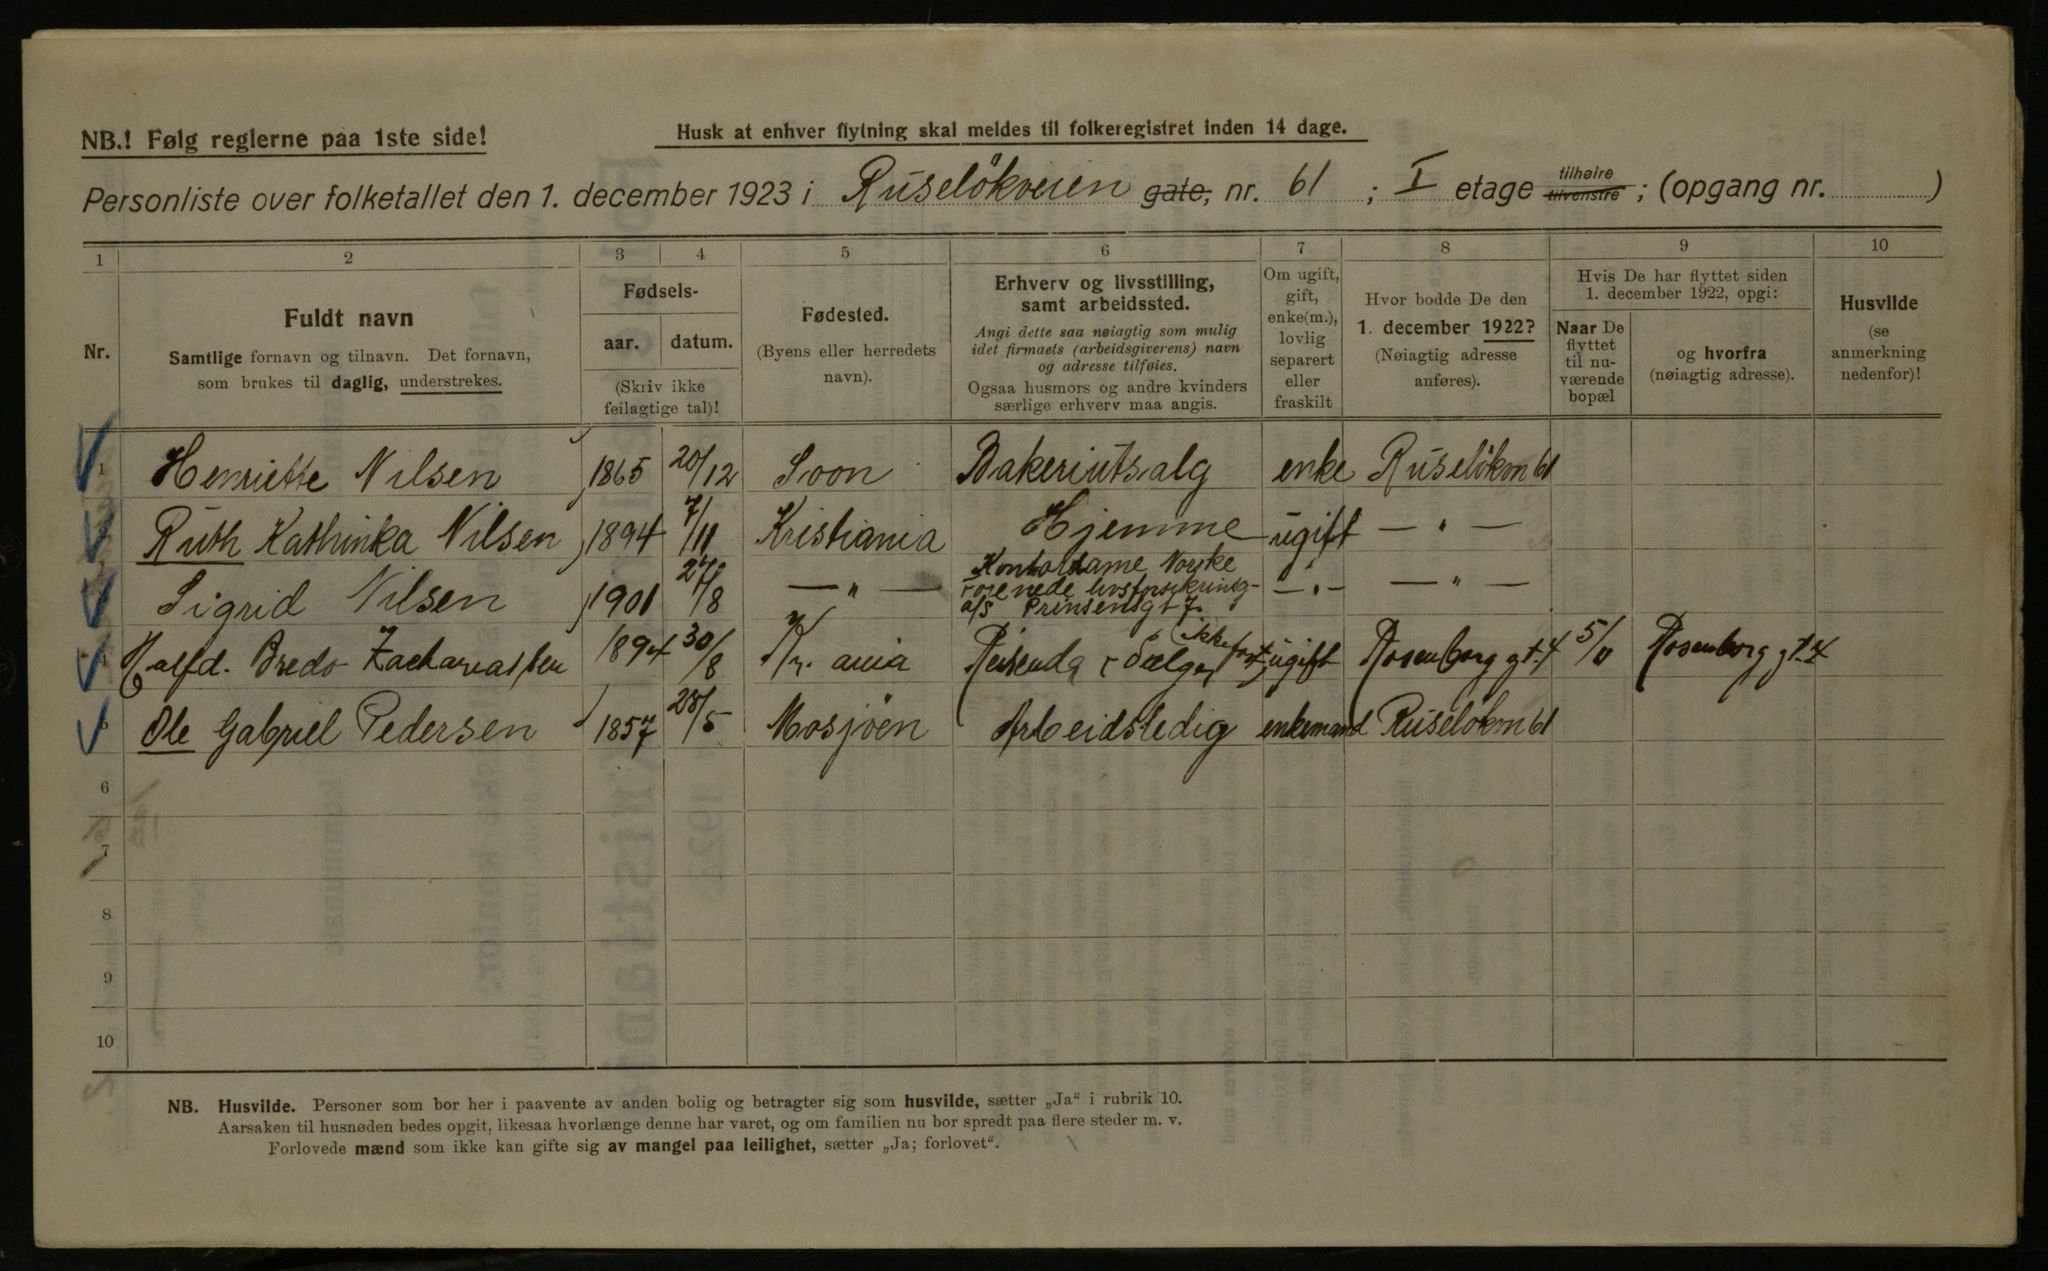 NB.! Følg reglerne paa 1ste side!
Husk at enhver flytning skal meldes til folkeregistret inden 14 dage.
Personliste over folketallet den 1. december 1923 i Ruseløkveien gate, nr. 61 ; I etage tilhøire tilvenstre ; (opgang nr. )
1 2 3 4 5 6 7 8 9 10
Nr.
Fuldt navn
Samtlige fornavn og tilnavn. Det fornavn,
som brukes til daglig, understrekes.
Fødsels-
aar. datum.
(Skriv ikke
feilagtige tal)!
Fødested.
(Byens eller herredets
navn).
Erhverv og livsstilling,
samt arbeidssted.
Angi dette saa nøiagtig som mulig
idet firmaets (arbeidsgiverens) navn
og adresse tilføies.
Ogsaa husmors og andre kvinders
særlige erhverv maa angis.
Om ugift,
gift,
enke(m.),
lovlig
separert
eller
fraskilt
Hvor bodde De den
1. december 1922?
(Nøiagtig adresse
anføres).
Hvis De har flyttet siden
1. december 1922, opgi:
Naar De
flyttet
til nu-
værende
bopæl
og hvorfra
(nøiagtig adresse).
Husvilde
(se
anmerkning
nedenfor)!
1 Henriette Nilsen 1865 20/12 Soon Bakeriutsalg enke Ruseløkvn 61
2 Ruth Kathinka Nilsen 1894 7/11 Kristiania Hjemme ugift — " —
3 Sigrid Nilsen 1901 27/8 — " — Kontoldame Norske
forenede livsforsikrings-
a/s Prinsensgt 7. — " — — " —
4 Halfd. Bredo Zachariassen 1894 30/8 Kr.ania Reisende ugift Rosenborg gt. 4 5/11 Rosenborg gt. 4
5 Ole Gabriel Pedersen 1857 28/5 Mosjöen Arbeidsledig enkemand Ruseløkvn 61
6
7
8
9
10
NB. Husvilde. Personer som bor her i paavente av anden bolig og betragter sig som husvilde, sætter „Ja" i rubrik 10.
Aarsaken til husnøden bedes opgit, likesaa hvorlænge denne har varet, og om familien nu bor spredt paa flere steder m. v.
Forlovede mænd som ikke kan gifte sig av mangel paa leilighet, sætter „Ja; forlovet".